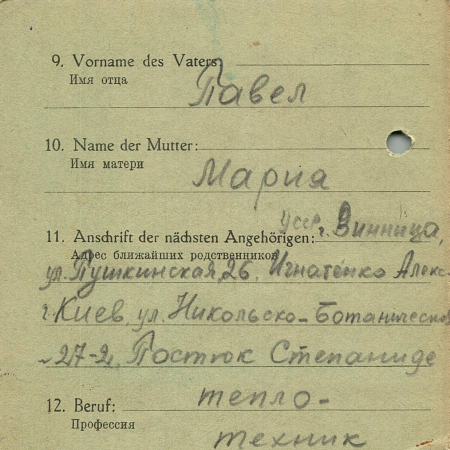 9. Vorname des Vaters:
Имя отца
Павел
10. Name der Mutter:
Имя матери
Мария
УССР г. Винница,
11. Anschrift der nächsten Angehörigen:
Адрес ближайших родственников
ул. Пушкинская 26, Игнатенко Алекс-
г. Киев, ул. Никольско-Ботаническая
27-2, Постюк Степаниде
12. Beruf: тепло-
Профессия
техник